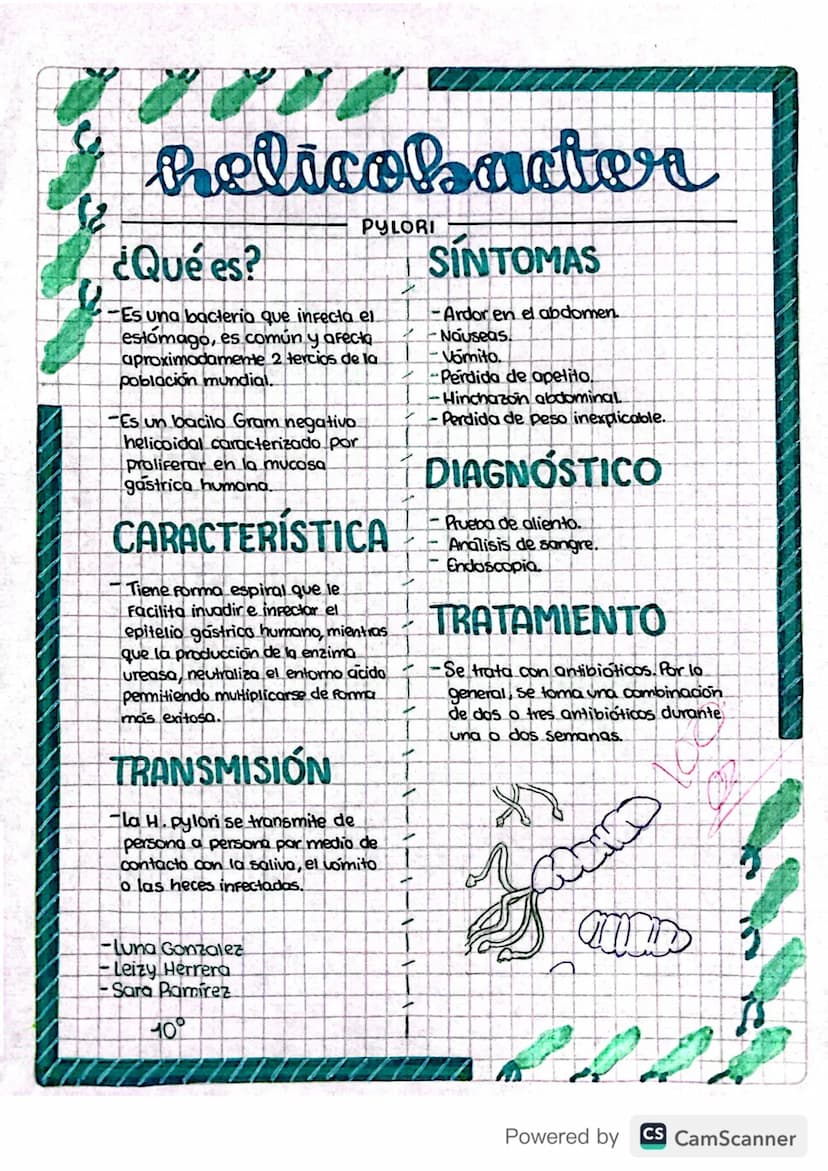 helicobacter
PYLORI
¿Qué es?
-Es una bacteria que infecta el
estómago, es común y afecta
aproximadamente 2 tercios de la
población mundial.
-Es un bacilo Gram negativo
helicoidal caracterizado por
proliferar en la mucosa
gástrica humana.
CARACTERÍSTICA
- Tiene forma espiral que le
facilita invadir e infectar el
epitelio gástrico humano, mientras
que la producción de la enzima
ureasa, neutraliza el entorno ácido
permitiendo multiplicarse de forma
más exitosa.
TRANSMISIÓN
-la H. pylori se transmite de
persona a persona por medio de
contacto con la saliva, el vómito
o las heces infectadas.
-Luna Gonzalez
-Leizy Herrera
-Sara Ramírez
10°
SÍNTOMAS
-Ardor en el abdomen.
-Náuseas.
-Vómito.
-Pérdida de apetito.
-Hinchazón abdominal.
-Perdida de peso inexplicable.
DIAGNÓSTICO
- Prueba de aliento.
- Análisis de sangre.
- Endoscopia.
TRATAMIENTO
-Se trata con antibióticos. Por lo
general, se toma una combinación
de dos o tres antibióticos durante
una o dos semanas.
100
Powered by CS CamScanner